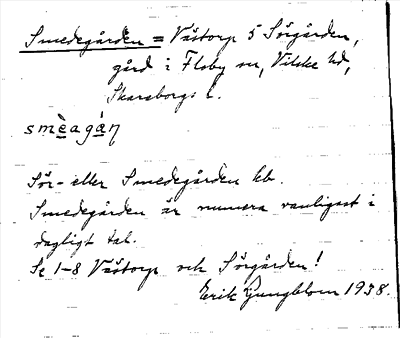 Smedegården = Våstorp 5 Sörgården,
gård i Floby sn, Vilske hd,
Skaraborgs l.
smèagàn
Sör- eller Smedegården kb.
Smedegården är numera vanligast i
dagligt tal.
Se 1-8 Våstorp och Sörgården!
Erik Ljungblom 1938.